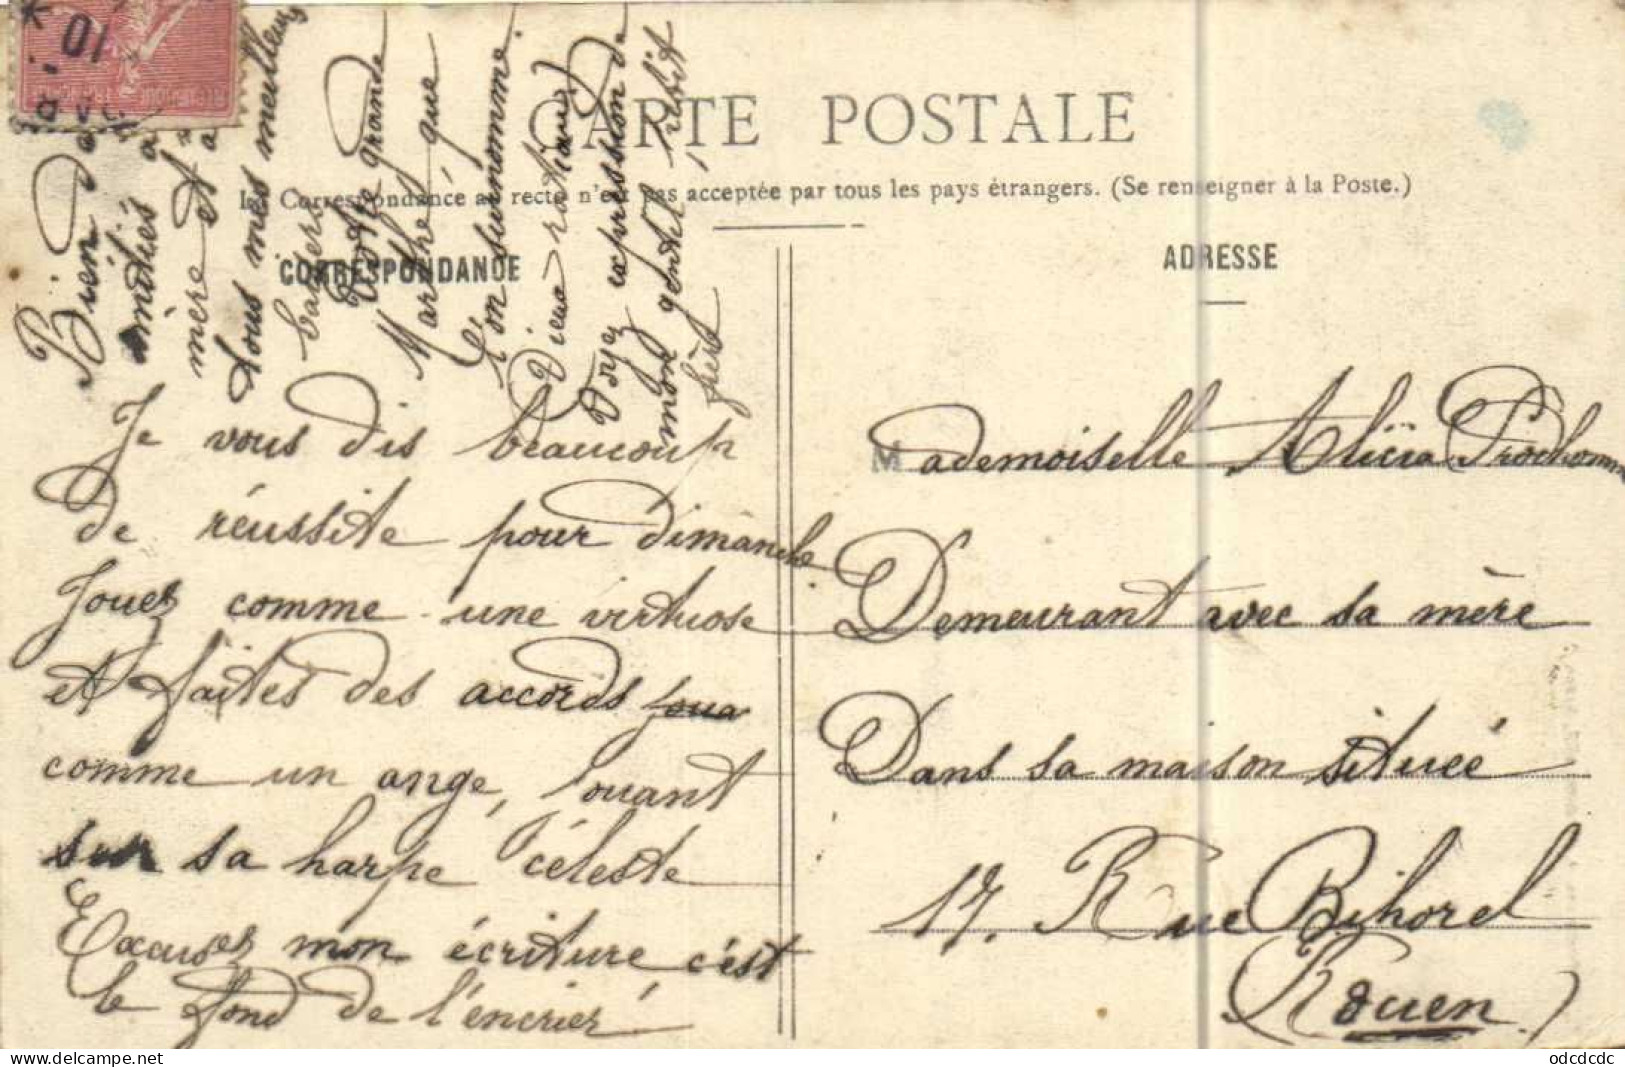 CARTE POSTALE
La Correspondance au recto n'est pas acceptée par tous les pays étrangers. (Se renseigner à la Poste.)
CORRESPONDANCE
ADRESSE
Je vous dis beaucoup
de réussite pour dimanche
Jouez comme une virtuose
et faites des accords
comme un ange, jouant
sur sa harpe céleste
Excusez mon écriture c'est
le fond de l'encrier
Bien
amitiés à
mère et à
tous mes meilleurs
baisers
Votre grande
Marthe, que
l'on surnomme
Dieu
Voyez expression de
mon gentil, petit
frère
Mademoiselle Alicia Prodhomme
Demeurant avec sa mère
Dans sa maison située
17, Rue Bihorel
(Rouen)
10
odcdcdc